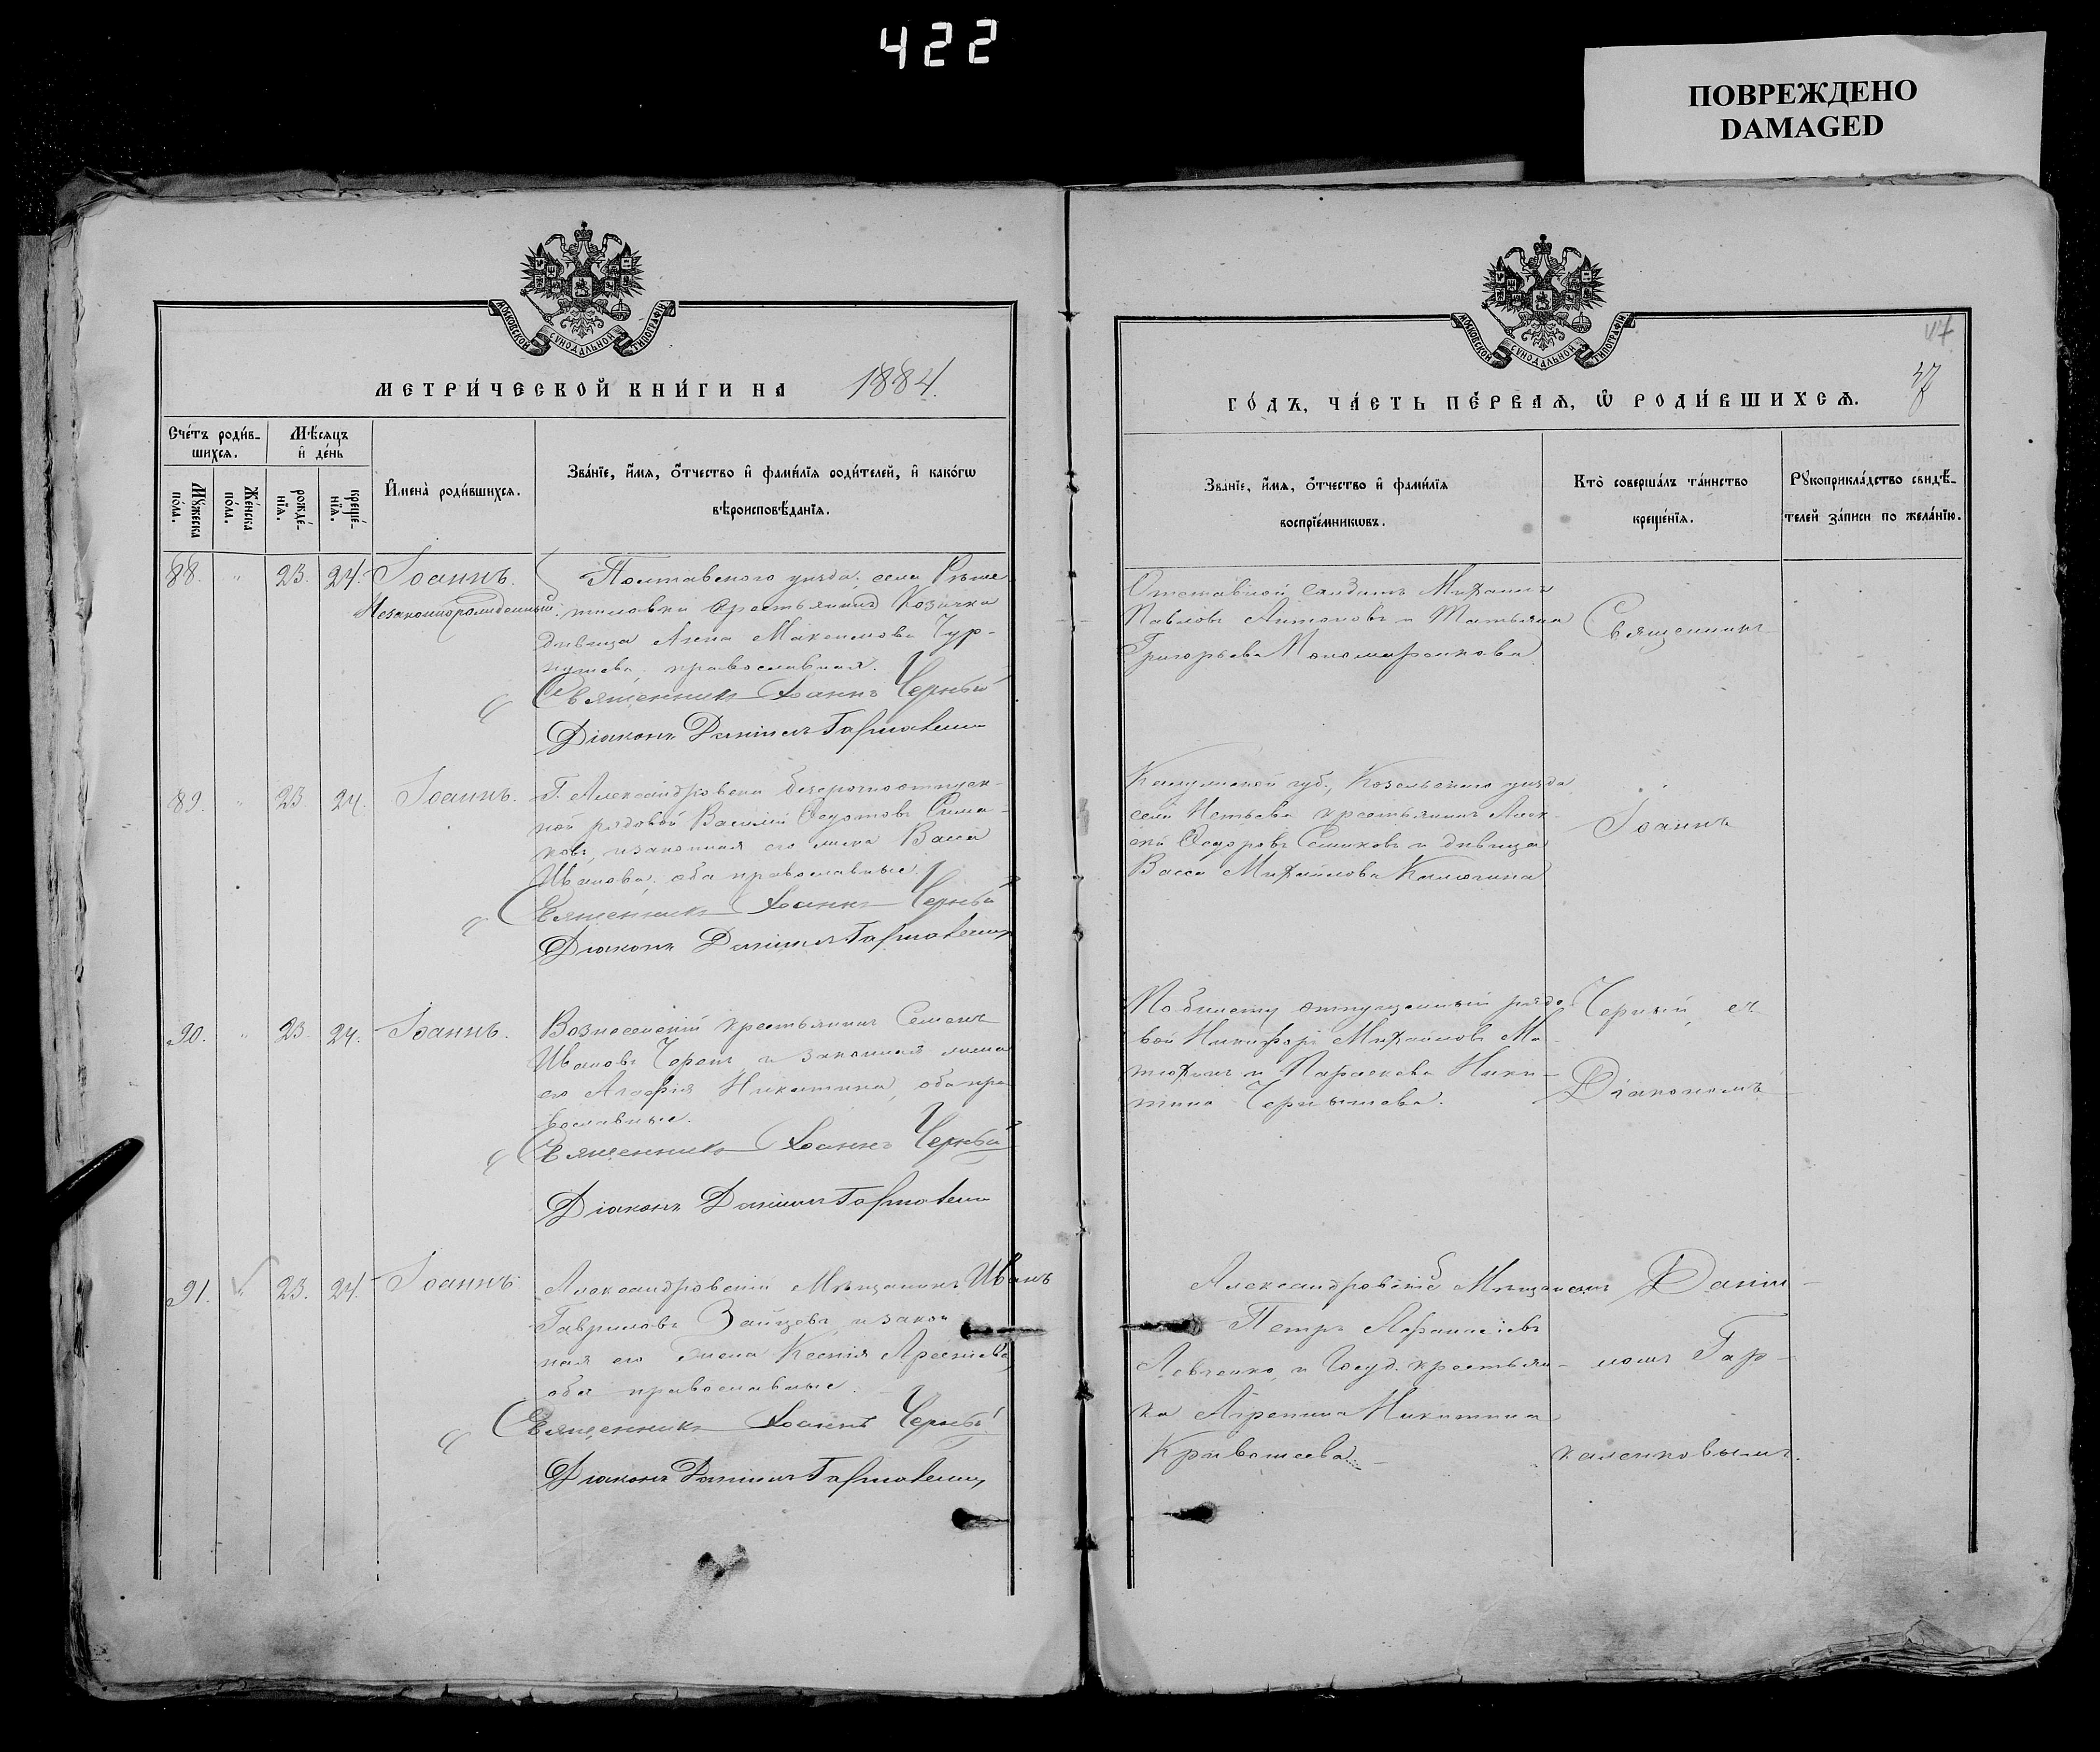 422
ПОВРЕЖДЕНО
DAMAGED
МОСКОВСКОЙ СѴНОДАЛЬНОЙ ТИПОГРАФІИ
МЕТРИ́ЧЕСКОЙ КНИ́ГИ НА 1884.
Сче́тъ роди́в-
шихся.
Мѣ́сяцъ
и҆ де́нь
Мꙋ́жеска
по́ла.
Же́нска
по́ла.
рожде́-
нїя.
креще́-
нїя.
И҆мена̀ роди́вшихся.
Зва́нїе, и҆́мя, ѻ҆́тчество и҆ фами́лїя роди́телей, и҆ како́гѡ
вѣроисповѣ́данїя.
88. " 23. 24. Іоаннъ.
Незаконнорожденный
Полтавского уѣзда, села Рѣше-
тиловки крестьянина Козачка
дѣвица Анна Максимова Чур-
православная.
Священникъ Іоаннъ Черный
Діаконъ Даніилъ
89. " 23. 24. Іоаннъ.
Г. Александровска безсрочноотпуск-
ной рядовой Василій Ѳедотовъ Сима-
ковъ, и законная его жена Васса
Иванова, оба православные.
Священникъ Іоаннъ Черный
Діаконъ Даніилъ
90. " 23. 24. Іоаннъ.
Вознесенскій крестьянинъ Семенъ
Ивановъ и законная жена
его Агафія Никитина, оба пра-
вославные.
Священникъ Іоаннъ Черный
Діаконъ Даніилъ
91. 23. 24. Іоаннъ.
Александровскій Мѣщанинъ Иванъ
Гавриловъ Зайцевъ, и закон
ная его жена Ксенія Арсеніева
оба православные.
Священникъ Іоаннъ Черный
Діаконъ Даніилъ
МОСКОВСКОЙ СѴНОДАЛЬНОЙ ТИПОГРАФІИ
47
ГО́ДЪ, ЧА́СТЬ ПЕ́РВАЯ, Ѡ҆ РОДИ́ВШИХСЯ.
Зва́нїе, и҆́мя, ѻ҆́тчество и҆ фами́лїя
воспрїе́мникѡвъ.
Кто̀ соверша́лъ та́инство
креще́нїя.
Рꙋкоприкла́дство свидѣ́-
телей за́писи по жела́нїю.
Отставной солдатъ Михаилъ
Павловъ Антоновъ и Татьяна
Григорьева Пономаренкова
Священникъ
Калужской губ., Козельскаго уѣзда
села крестьянинъ Алек-
сѣй Ѳедоровъ Семиковъ и дѣвица
Васса Михайлова Калюгина
Іоаннъ
По билету отпущенный рядо-
вой Никифоръ Михайловъ Ма-
тюхинъ и Параскева Ники-
тина Чернышева.
Черный, съ
Діакономъ
Александровскій Мѣщанинъ
Петръ Афанасіевъ
Левченко, и Госуд. крестьян-
ка Агрепина Никитина
Кривошеева.
Даніи-
ломъ Гар-
каленковымъ.